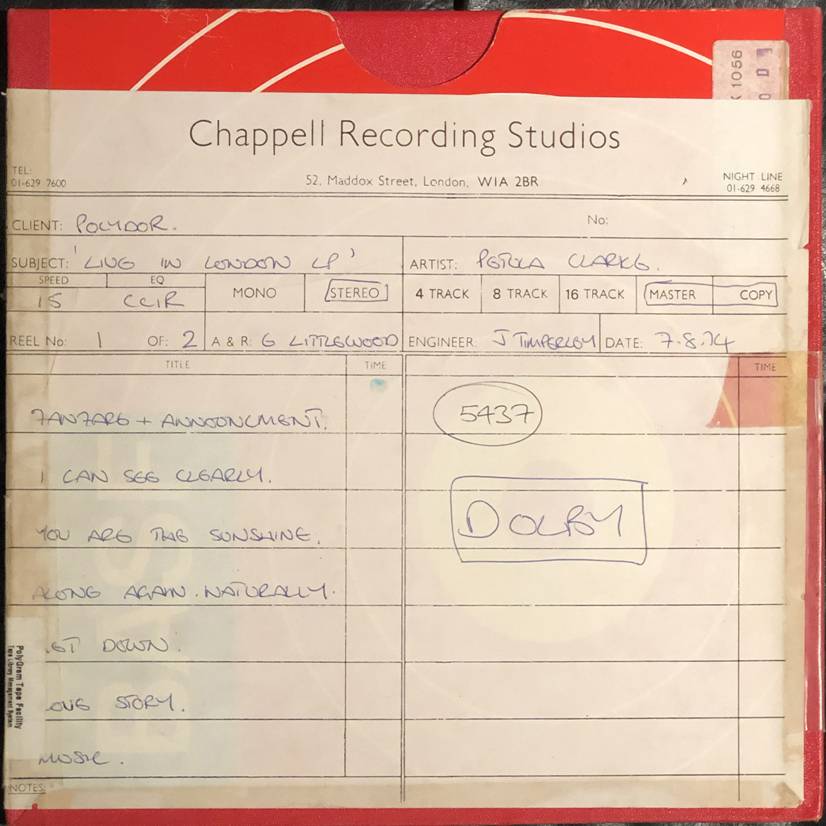 K 1056
Chappell Recording Studios
TEL:
01-629 7600
52, Maddox Street, London, W1A 2BR
NIGHT LINE
01-629 4668
CLIENT: POLYDOR.
No:
SUBJECT: 'LIVE IN LONDON LP'
ARTIST: PETULA CLARKE.
SPEED EQ
15 CCIR
MONO STEREO 4 TRACK 8 TRACK 16 TRACK MASTER COPY
REEL No: 1 OF: 2 A & R: G LITTLEWOOD ENGINEER: J TIMPERLEY DATE: 7.8.74
TITLE TIME TIME
FANFARE + ANNOUNCMENT. 5437
I CAN SEE CLEARLY.
DOLBY
YOU ARE THE SUNSHINE.
ALONG AGAIN. NATURALLY.
GET DOWN.
LOVE STORY.
MUSIC.
NOTES:
PolyGram Tape Facility
Tape Library Management System
BASF